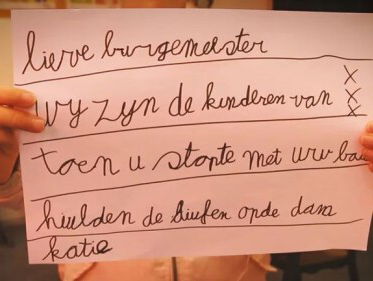 lieve burgemeister
wy zyn de kinderen van
x
x
x
toen u stopte met uw ba
huilden de duifen op de dam
katie